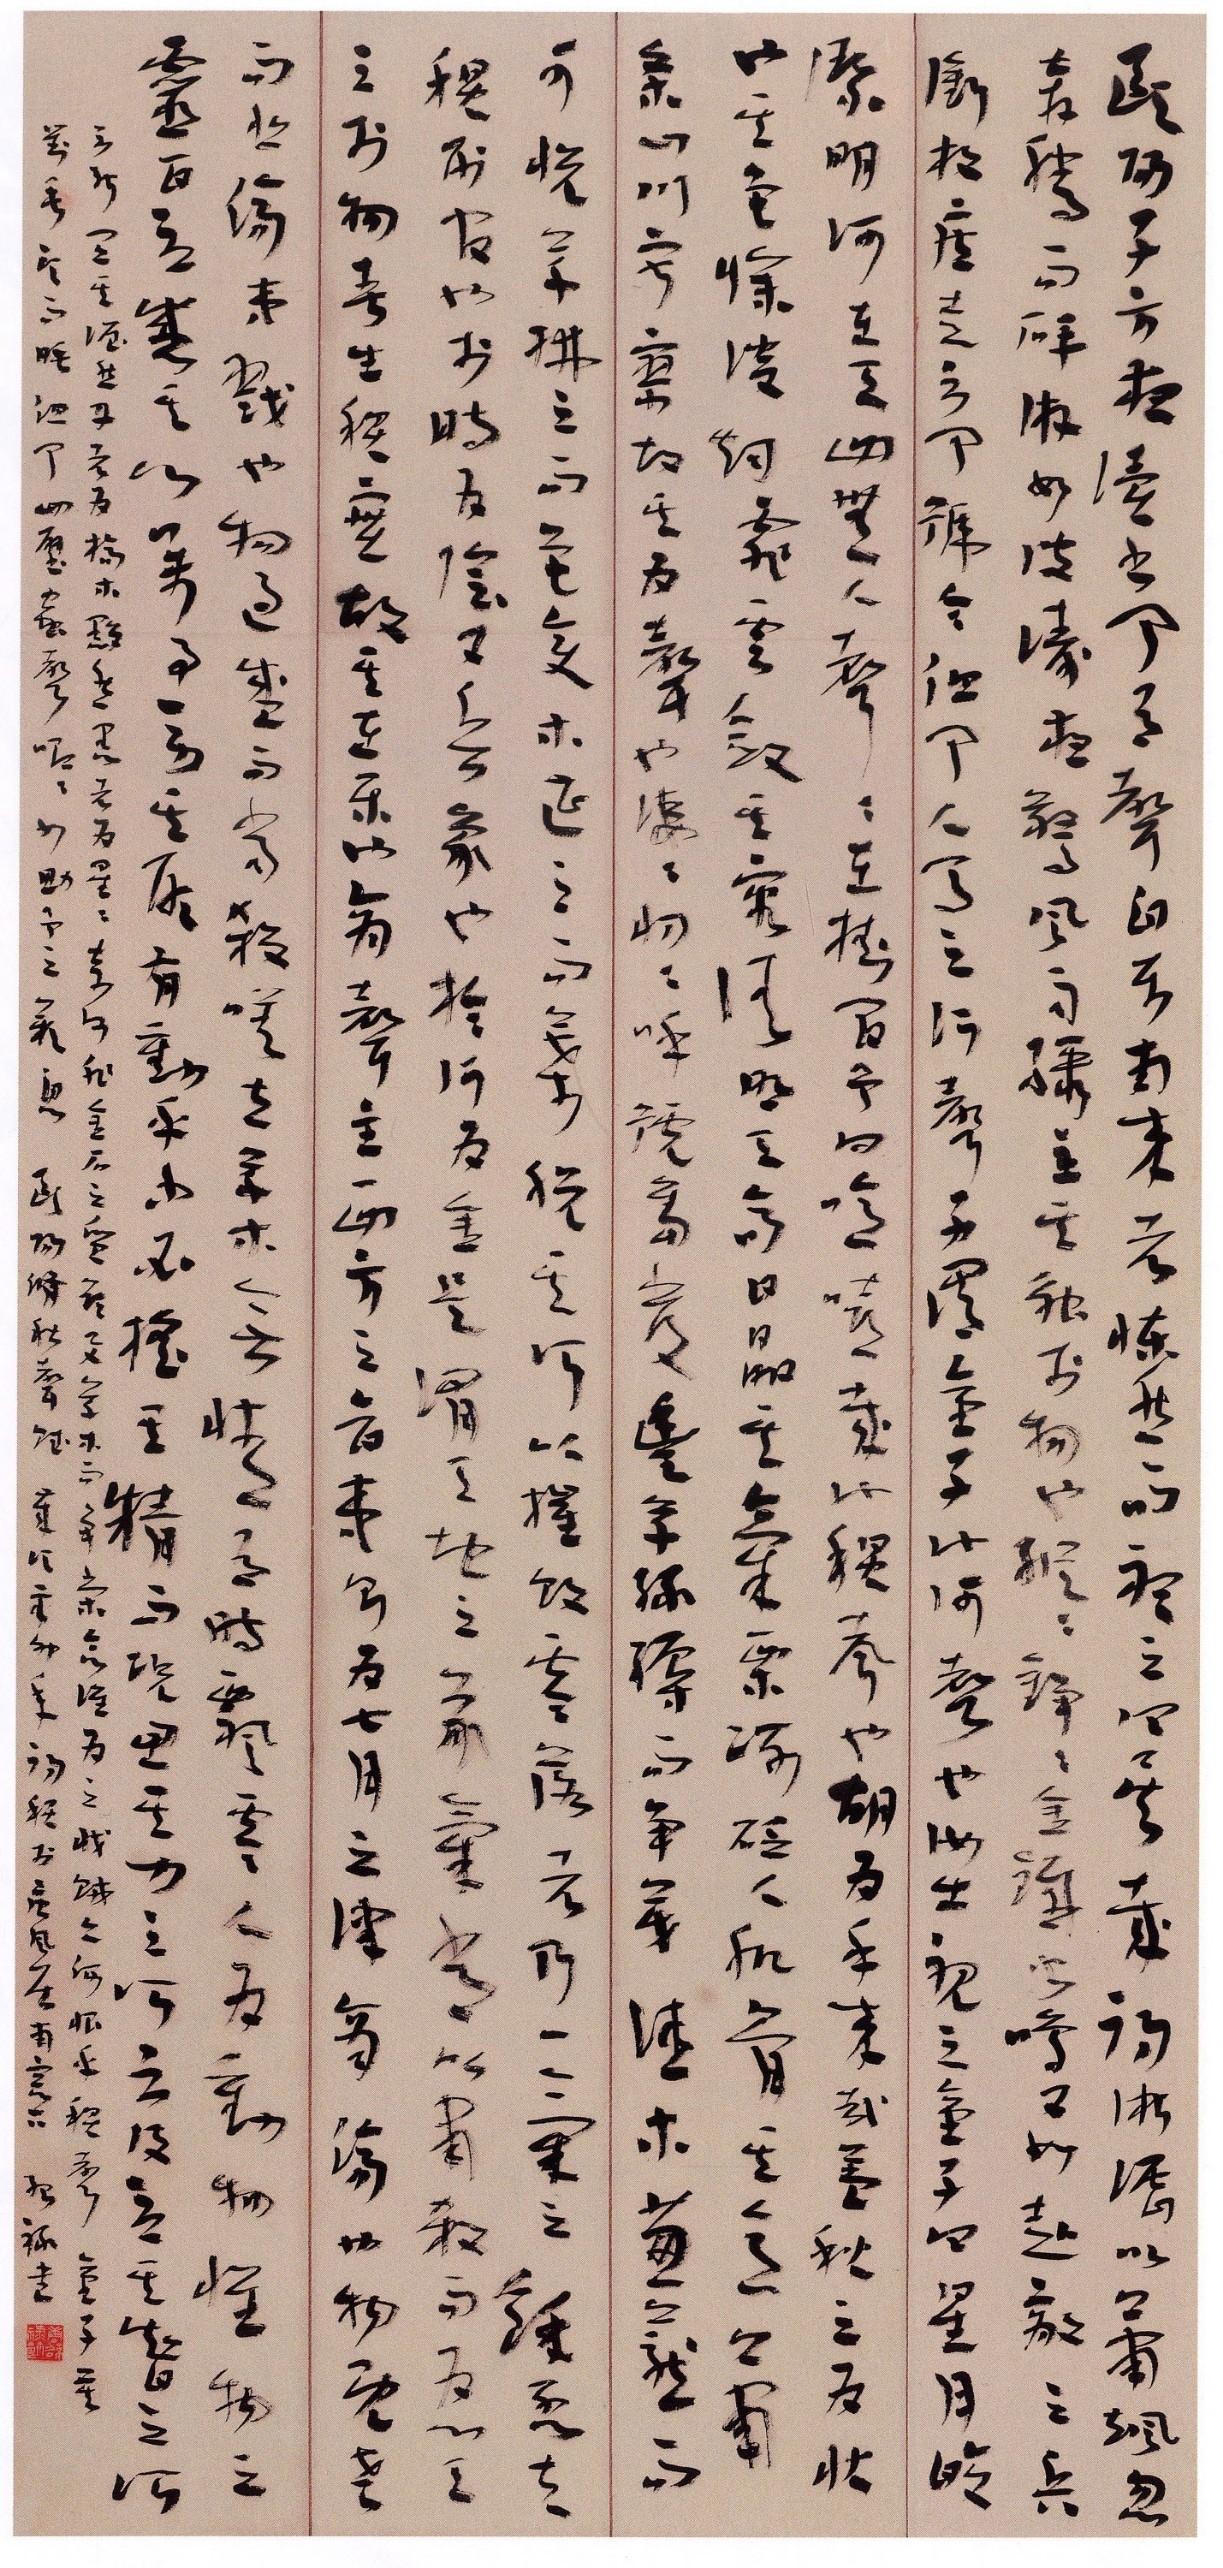 歐陽子方夜讀書聞有聲自西南來者悚然而聽之曰異哉初淅瀝以蕭颯忽
奔騰而砰湃如波濤夜驚風雨驟至其觸於物也鏦鏦錚錚金鐵皆鳴又如赴敵之兵
銜枚疾走不聞號令但聞人馬之行聲予謂童子此何聲也汝出視之童子曰星月皎
潔明河在天四無人聲聲在樹間予曰噫嘻悲哉此秋聲也胡為乎來哉蓋秋之為狀
也其色慘淡煙霏雲斂其容清明天高日晶其氣栗冽砭人肌骨其意蕭
條山川寂寥故其為聲也淒淒切切呼號奮發豐草綠縟而爭茂佳木蔥蘢而
可悅草拂之而色變木遭之而葉脫其所以摧敗零落者乃一氣之餘烈夫
秋刑官也於時為陰又兵象也於行為金是謂天地之義氣常以肅殺而為心天
之於物春生秋實故其在樂也商聲主西方之音夷則為七月之律商傷也物既老
而悲傷夷戮也物過盛而當殺嗟夫草木無情有時飄零人為動物惟物之
靈百憂感其心萬事勞其形有動乎中必搖其精而況思其力之所不及憂其智之所
不能宜其渥然丹者為槁木黟然黑者為星星奈何非金石之質欲與草木而爭榮念誰為之戕賊亦何恨乎秋聲童子莫
對垂頭而睡但聞四壁蟲聲唧唧如助予之歎息 歐陽修秋聲賦 歲次辛卯年初秋於南窗下 書